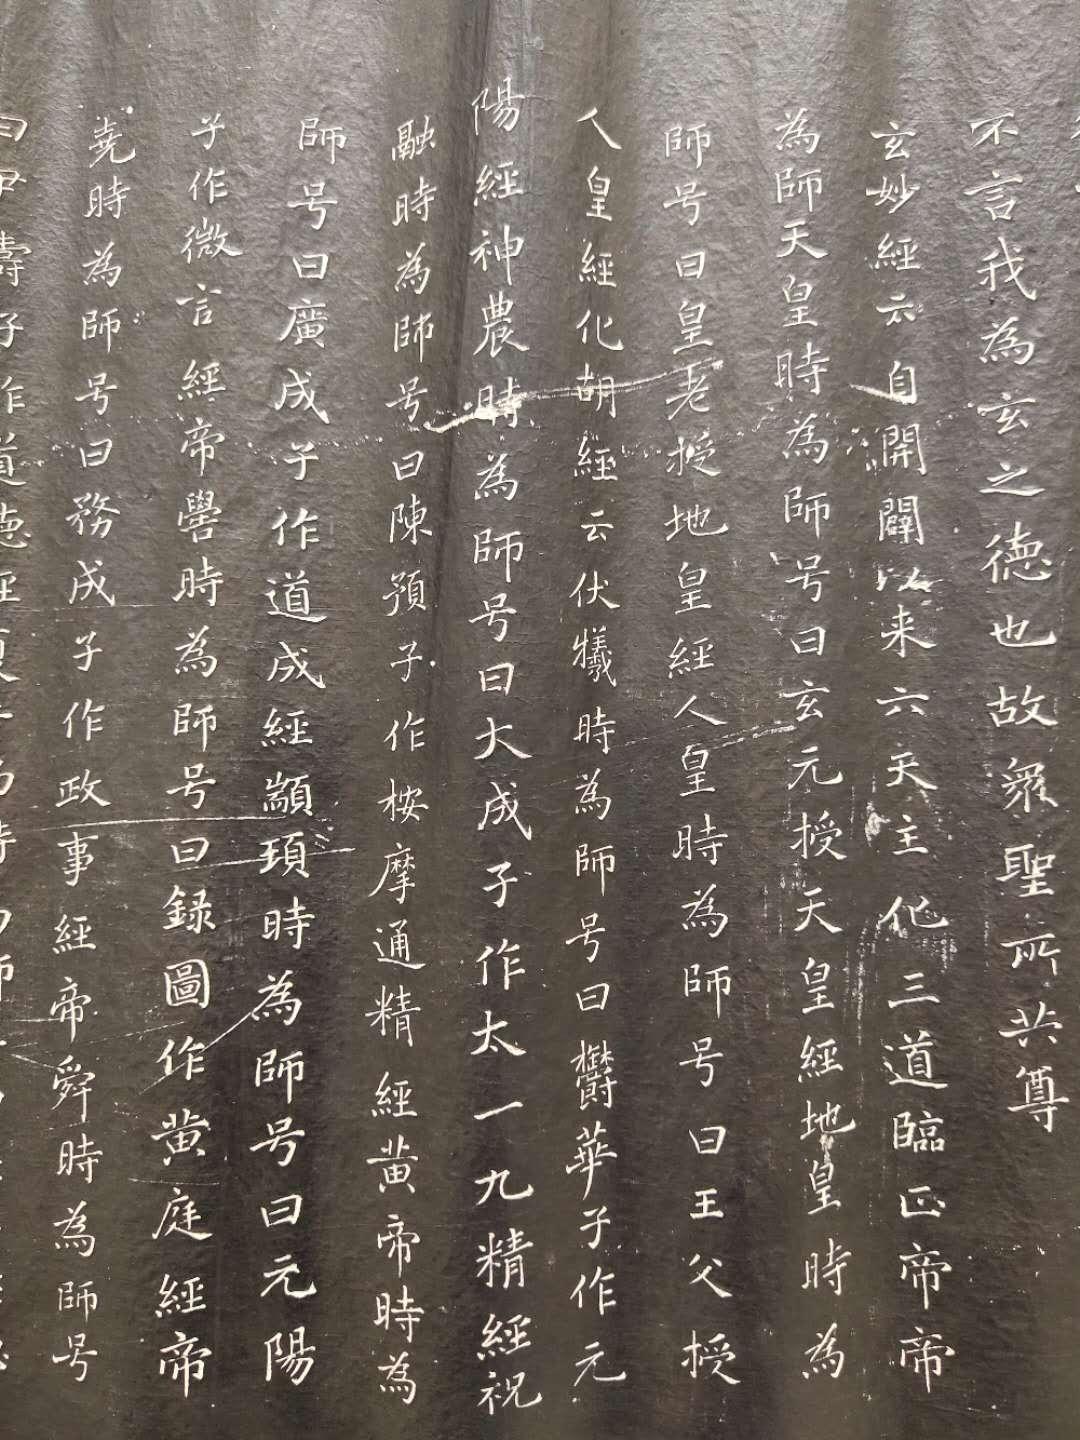 不言我為玄之德也故眾聖所共尊
玄妙經云自開闢以来六天主化三道臨正帝帝
為師天皇時為師号曰玄元授天皇經地皇時為
師号曰皇老授地皇經人皇時為師号曰王父授
人皇經化胡經云伏犧時為師号曰欝華子作元
陽經神農時為師号曰大成子作太一九精經祝
融時為師号曰陳預子作桉摩通精經黄帝時為
師号曰廣成子作道成經顓頊時為師号曰元陽
子作微言經帝嚳時為師号曰録圖作黄庭經帝
堯時為師号曰務成子作政事經帝舜時為師号
曰尹壽子作道德經